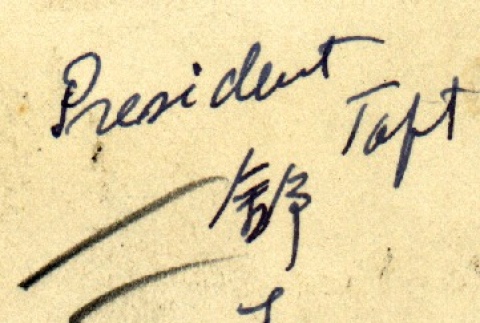 President
Taft
舒